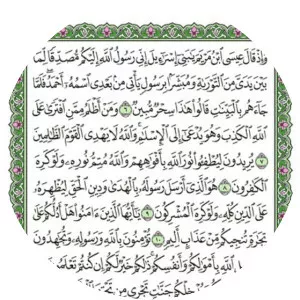 وَإِذْ قَالَ عِيسَى ٱبْنُ مَرْيَمَ يَٰبَنِىٓ إِسْرَٰٓءِيلَ إِنِّى رَسُولُ ٱللَّهِ إِلَيْكُم مُّصَدِّقًا لِّمَا
بَيْنَ يَدَىَّ مِنَ ٱلتَّوْرَىٰةِ وَمُبَشِّرًۢا بِرَسُولٍ يَأْتِى مِنۢ بَعْدِى ٱسْمُهُۥٓ أَحْمَدُ فَلَمَّا
جَآءَهُم بِٱلْبَيِّنَٰتِ قَالُوا۟ هَٰذَا سِحْرٌ مُّبِينٌ ٦ وَمَنْ أَظْلَمُ مِمَّنِ ٱفْتَرَىٰ عَلَى
ٱللَّهِ ٱلْكَذِبَ وَهُوَ يُدْعَىٰٓ إِلَى ٱلْإِسْلَٰمِ وَٱللَّهُ لَا يَهْدِى ٱلْقَوْمَ ٱلظَّٰلِمِينَ
٧ يُرِيدُونَ لِيُطْفِـُٔوا۟ نُورَ ٱللَّهِ بِأَفْوَٰهِهِمْ وَٱللَّهُ مُتِمُّ نُورِهِۦ وَلَوْ كَرِهَ
ٱلْكَٰفِرُونَ ٨ هُوَ ٱلَّذِىٓ أَرْسَلَ رَسُولَهُۥ بِٱلْهُدَىٰ وَدِينِ ٱلْحَقِّ لِيُظْهِرَهُۥ
عَلَى ٱلدِّينِ كُلِّهِۦ وَلَوْ كَرِهَ ٱلْمُشْرِكُونَ ٩ يَٰٓأَيُّهَا ٱلَّذِينَ ءَامَنُوا۟ هَلْ أَدُلُّكُمْ عَلَىٰ
تِجَٰرَةٍ تُنجِيكُم مِّنْ عَذَابٍ أَلِيمٍ ١٠ تُؤْمِنُونَ بِٱللَّهِ وَرَسُولِهِۦ وَتُجَٰهِدُونَ
ٱللَّهِ بِأَمْوَٰلِكُمْ وَأَنفُسِكُمْ ذَٰلِكُمْ خَيْرٌ لَّكُمْ إِن كُنتُمْ
جَنَّٰتٍ تَجْرِى مِن